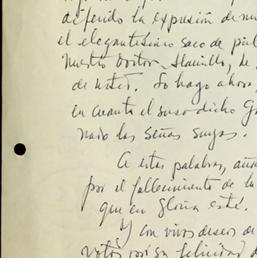 diferido la expresión de
el elegantísimo saco de piel
Nuestro Doctor
de usted. Lo hago ahora,
en cuanto el suso dicho
nado las señas suyas.
A estas palabras,
por el fallecimiento de
que en Gloria esté.
Y con vivos deseos de
votos por su felicidad